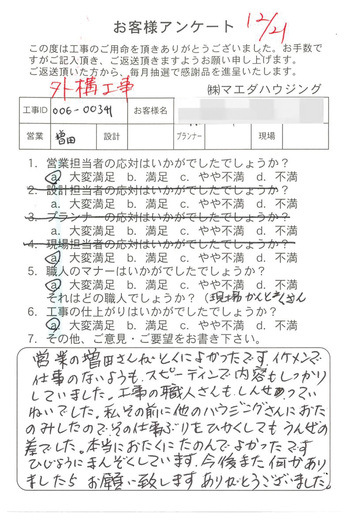 お客様アンケート 12/21
この度は工事のご用命を頂きありがとうございました。お手数で
すがご記入頂き、ご返送頂きますようお願い申し上げます。
ご返送頂いた方から、毎月抽選で感謝品を進呈いたします。
外構工事 ㈱マエダハウジング
工事ID 006-00341 お客様名
営業 増田 設計 プランナー 現場
1. 営業担当者の応対はいかがでしたでしょうか？
a. 大変満足 b. 満足 c. やや不満 d. 不満
2. 設計担当者の応対はいかがでしたでしょうか？
a. 大変満足 b. 満足 c. やや不満 d. 不満
3. プランナーの応対はいかがでしたでしょうか？
a. 大変満足 b. 満足 c. やや不満 d. 不満
4. 現場担当者の応対はいかがでしたでしょうか？
a. 大変満足 b. 満足 c. やや不満 d. 不満
5. 職人のマナーはいかがでしたでしょうか？
a. 大変満足 b. 満足 c. やや不満 d. 不満
それはどの職人でしょうか？（現場かんとくさん
6. 工事の仕上がりはいかがでしたでしょうか？
a. 大変満足 b. 満足 c. やや不満 d. 不満
7. その他、ご意見・ご要望をお書き下さい。
営業の増田さんねとくによかったです。イケメンで
仕事のないようも、スピーディーで内容もしっかり
していました。工事の職人さんも、しんせつてい
ねいでした。私その前に他のハウジングさんにおた
のみしたので、その仕事ぶりもひかくしてもうんぜの
差でした。本当におたくにたのんでよかったです
ひじょうにまんぞくしています。今後また何かあり
ましたら お願い致します ありがとうございました。